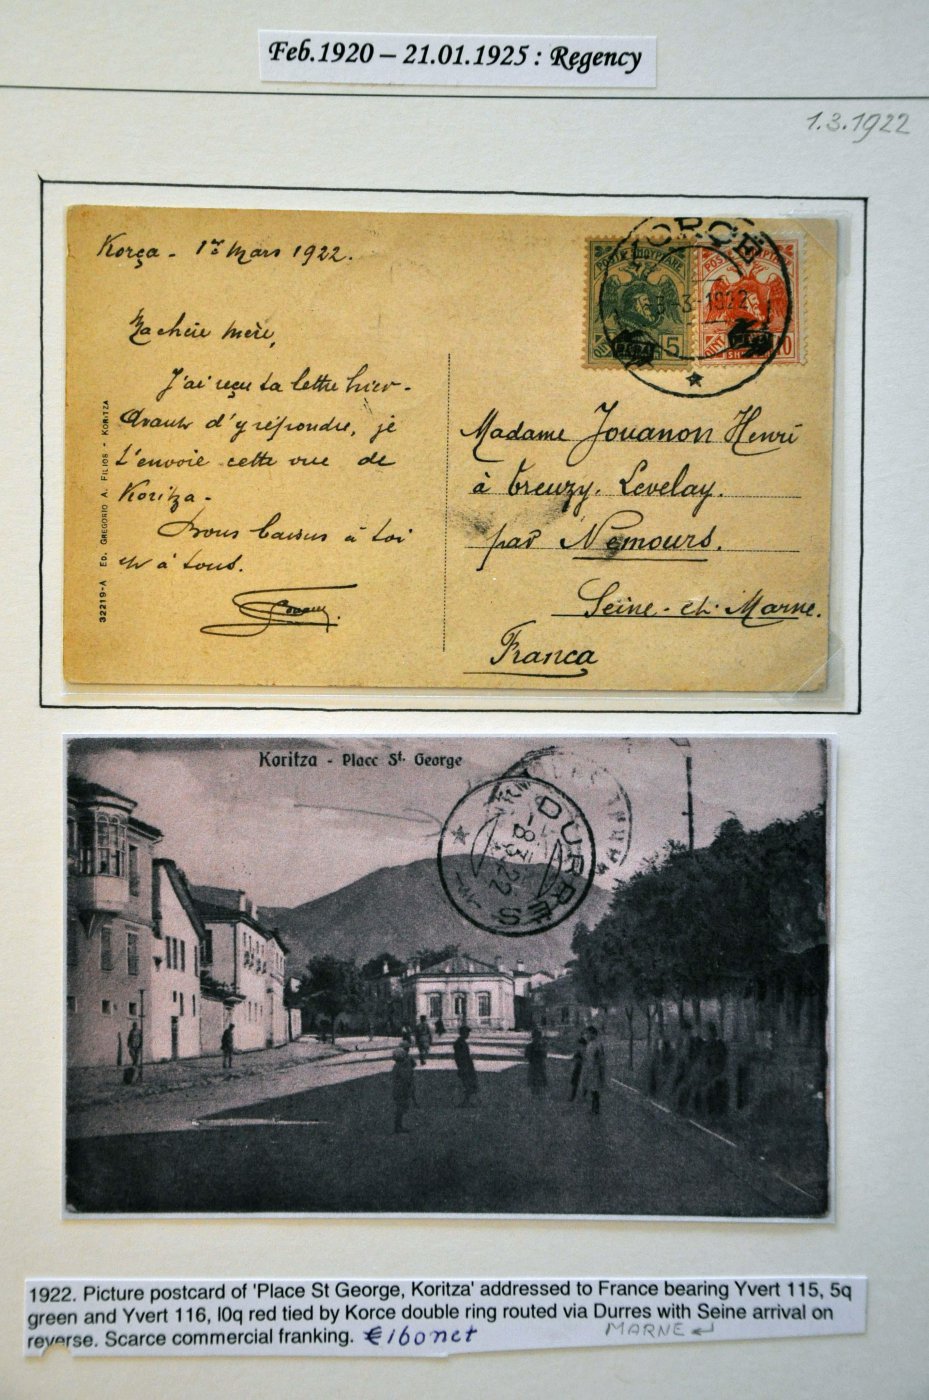 Feb.1920 – 21.01.1925 : Regency
1.3.1922
Korça - 1er Mars 1922.
Ma chère mère,
J'ai reçu ta lettre hier -
Avant d'y répondre, je
t'envoie cette vue de
Koritza -
Bons baisers à toi
et à tous.
32219-A ED. GREGORIO A. FILIOS - KORITZA
POSTE SHQYPTARE
5
KORÇË
3-1922
Madame Jouanon Henri
à Treuzy. Levelay.
par Nemours.
Seine-et-Marne.
Franca
Koritza - Place St. George
DURRËS
-8.3.22
1922. Picture postcard of 'Place St George, Koritza' addressed to France bearing Yvert 115, 5q
green and Yvert 116, l0q red tied by Korce double ring routed via Durres with Seine arrival on
reverse. Scarce commercial franking. €160 net
MARNE